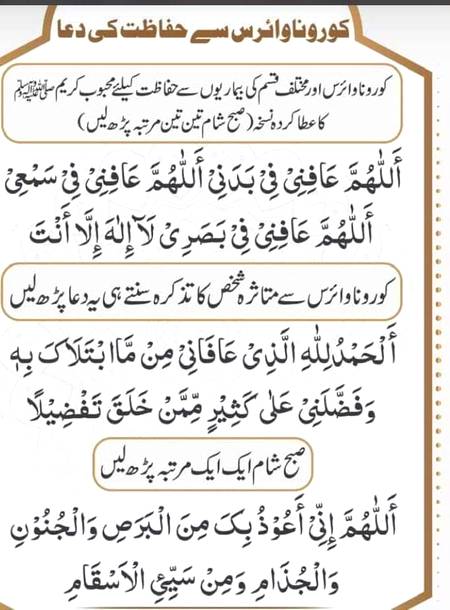 کوروناوائرس سے حفاظت کی دعا
کوروناوائرس اور مختلف قسم کی بیماریوں سے حفاظت کیلئے محبوب کریم ﷺ
کا عطا کردہ نسخہ (صبح شام تین تین مرتبہ پڑھ لیں)
أَللّٰهُمَّ عَافِنِیْ فِیْ بَدَنِیْ أَللّٰهُمَّ عَافِنِیْ فِیْ سَمْعِیْ
أَللّٰهُمَّ عَافِنِیْ فِیْ بَصَرِیْ لَآ إِلٰهَ إِلَّا أَنْتَ
کوروناوائرس سے متاثرہ شخص کا تذکرہ سنتے ہی یہ دعا پڑھ لیں
أَلْحَمْدُلِلّٰهِ الَّذِیْ عَافَانِیْ مِنْ مَّا ابْتَلَاکَ بِهٖ
وَفَضَّلَنِیْ عَلٰی کَثِیْرٍ مِّمَّنْ خَلَقَ تَفْضِیْلًا
صبح شام ایک ایک مرتبہ پڑھ لیں
أَللّٰهُمَّ إِنِّیْ أَعُوْذُ بِکَ مِنَ الْبَرَصِ وَالْجُنُوْنِ
وَالْجُذَامِ وَمِنْ سَیِّئِ الْاَسْقَامِ